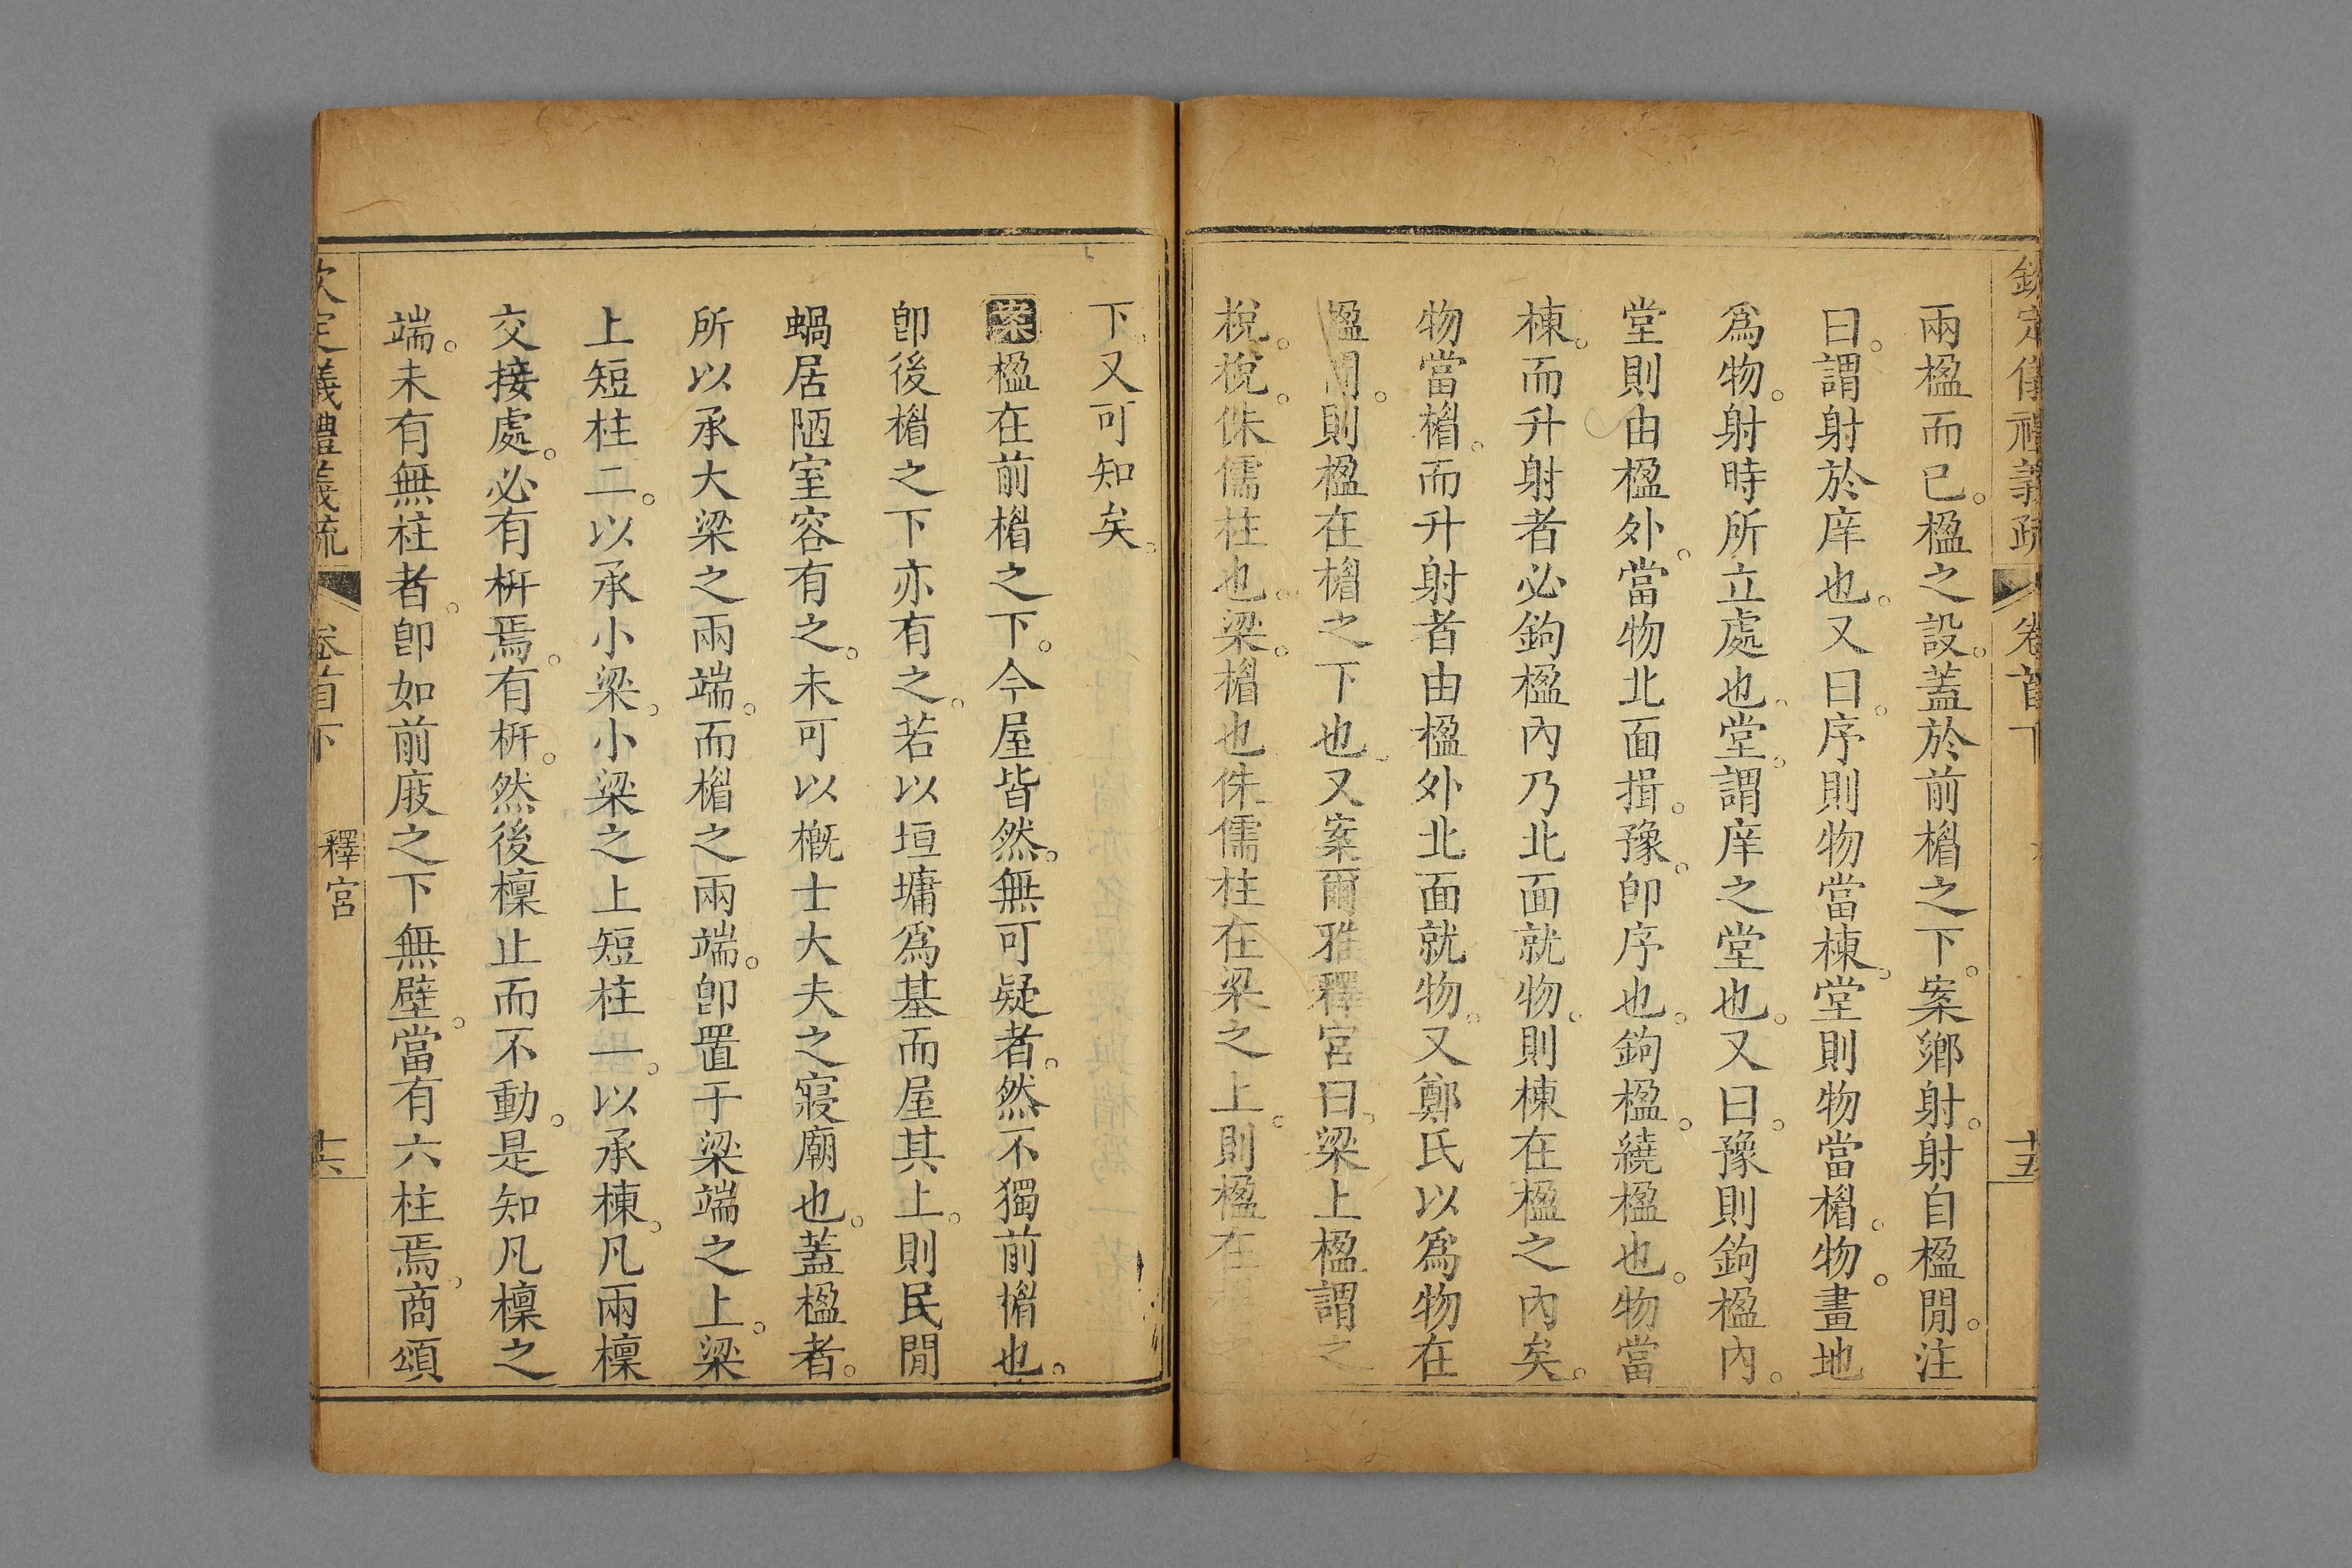 欽定儀禮義疏 卷首下 十五
兩楹而已。楹之設。蓋於前楣之下。案鄉射。射自楹閒。注
曰。謂射於庠也。又曰。序則物當棟。堂則物當楣。物。畫地
爲物。射時所立處也。堂。謂庠之堂也。又曰。豫則鉤楹內。
堂則由楹外。當物北面揖。豫。卽序也。鉤楹。繞楹也。物當
棟。而升射者必鉤楹內乃北面就物。則棟在楹之內矣。
物當楣。而升射者由楹外北面就物。又鄭氏以爲物在
楹閒。則楹在楣之下也。又案爾雅釋宮曰。梁上楹謂之
梲。梲。侏儒柱也。梁。楣也侏儒柱在梁之上。則楹在楣
下。又可知矣。
案楹在前楣之下。今屋皆然。無可疑者。然不獨前楣也。
卽後楣之下亦有之。若以垣墉爲基而屋其上。則民閒
蝸居陋室容有之。未可以概士大夫之寢廟也。蓋楹者。
所以承大梁之兩端。而楣之兩端。卽置于梁端之上。梁
上短柱二。以承小梁。小梁之上短柱一。以承棟。凡兩檁
交接處。必有枅焉。有枅。然後檁止而不動。是知凡檁之
端。未有無柱者。卽如前庪之下無壁。當有六柱焉。商頌
欽定儀禮義疏 卷首下 釋宮 十六